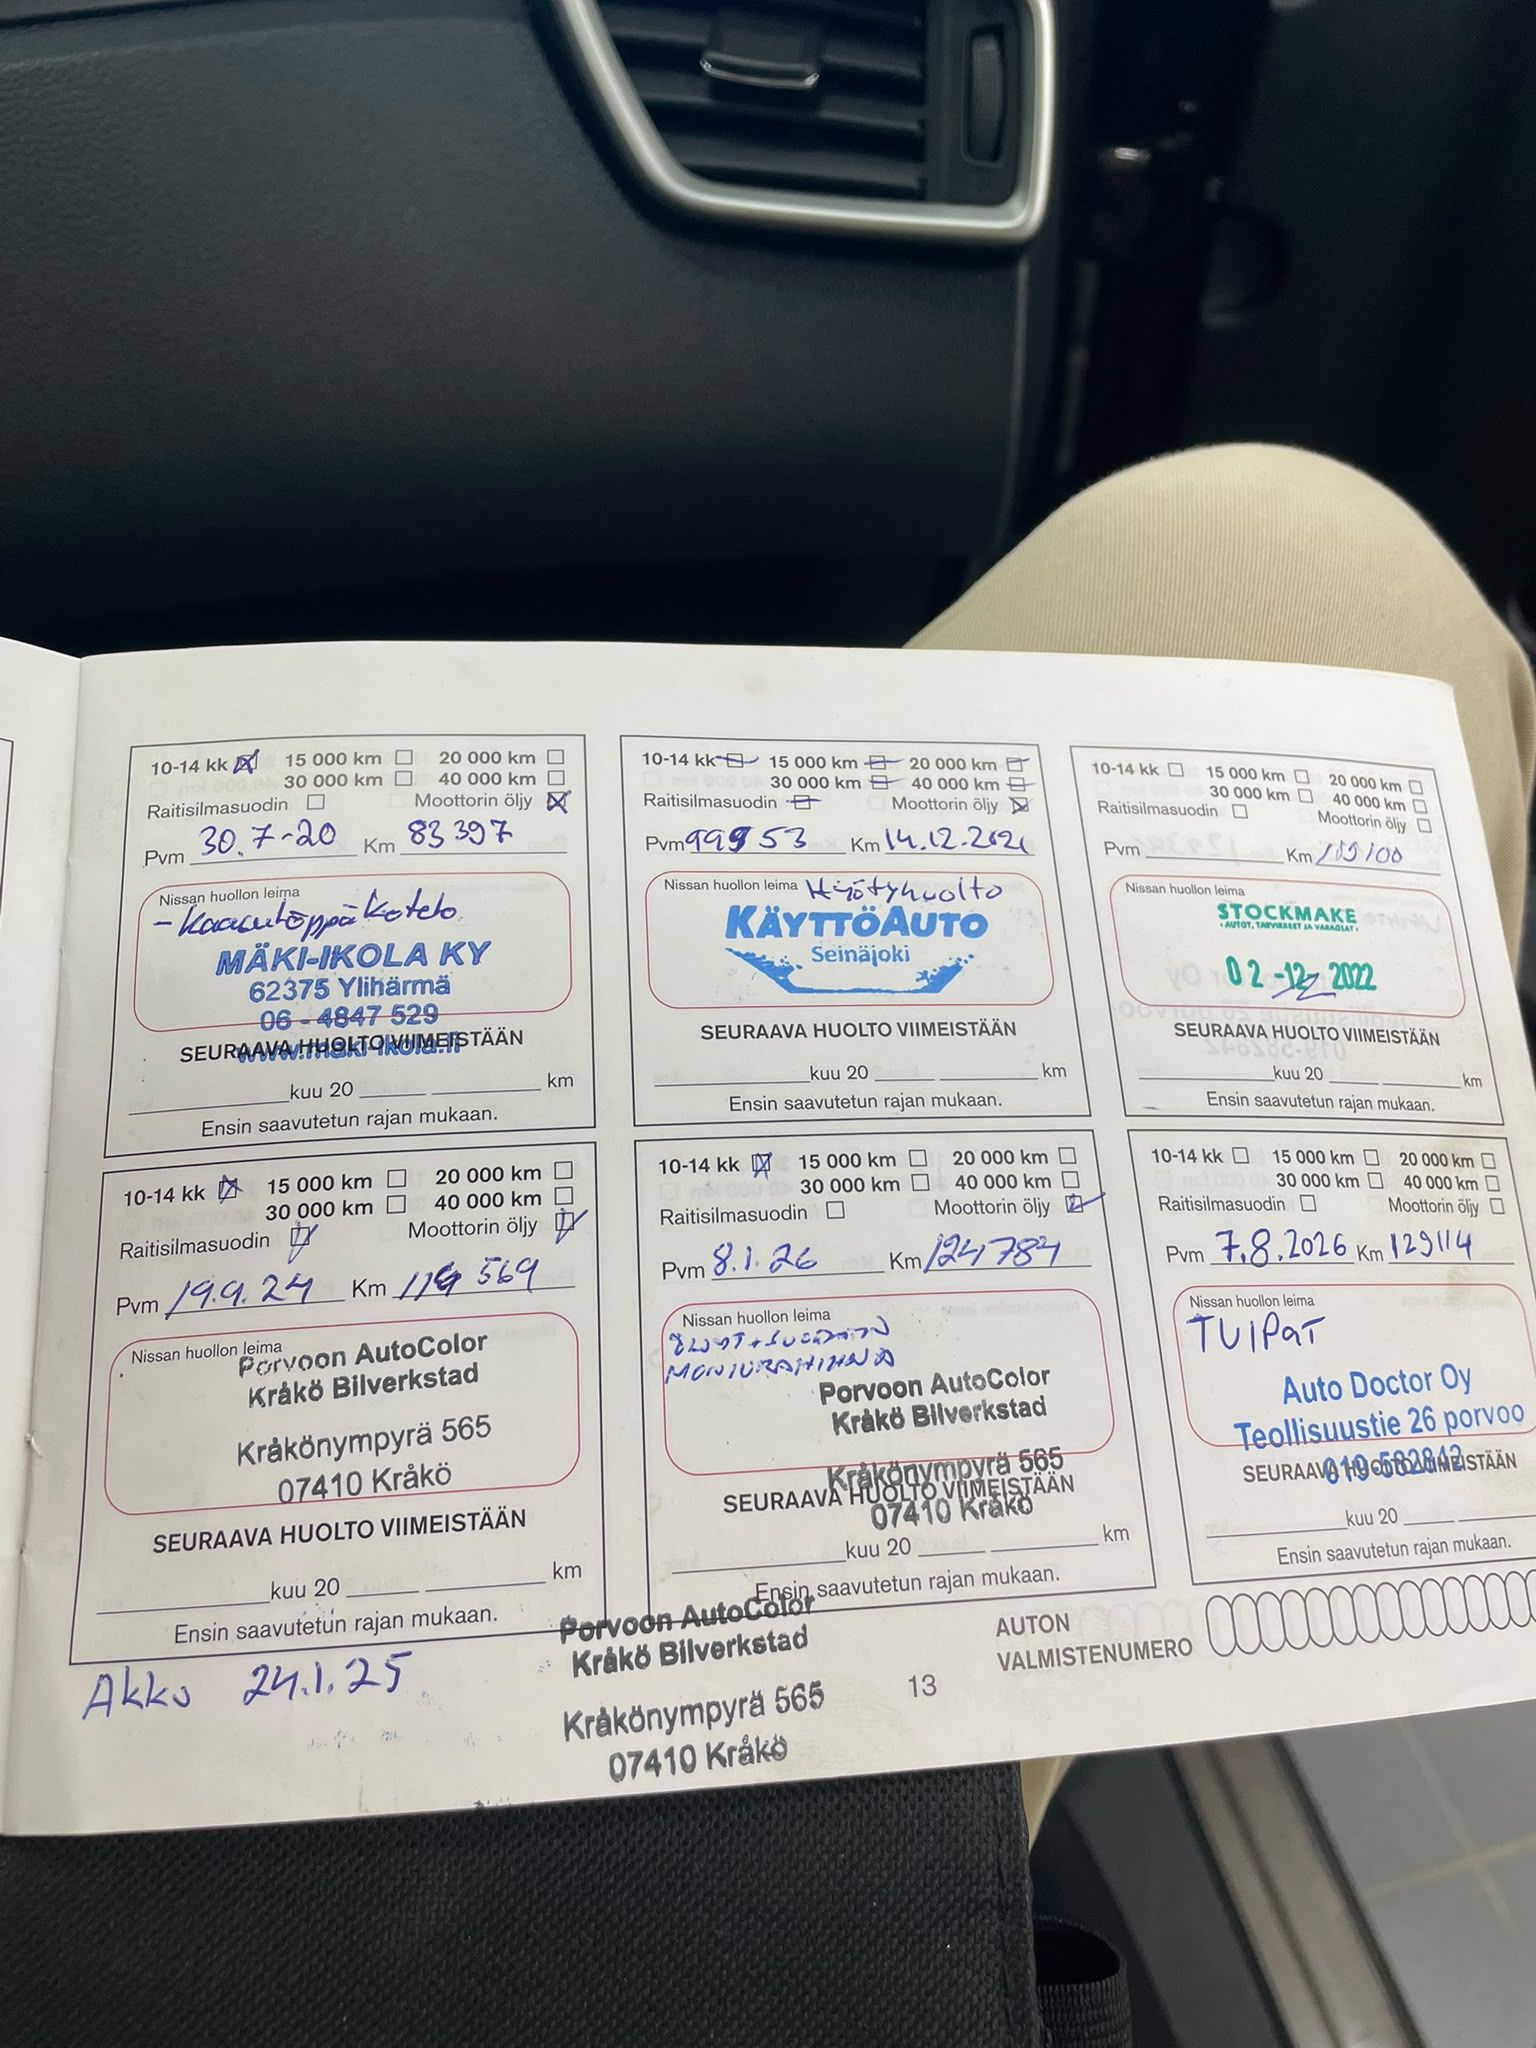 10-14 kk 15 000 km 20 000 km
30 000 km 40 000 km
Raitisilmasuodin Moottorin öljy
Pvm 30.7-20 Km 83 397
Nissan huollon leima
MÄKI-IKOLA KY
62375 Ylihärmä
06 - 4847 529
www.maki-ikola.fi
SEURAAVA HUOLTO VIIMEISTÄÄN
kuu 20 km
Ensin saavutetun rajan mukaan.
10-14 kk 15 000 km 20 000 km
30 000 km 40 000 km
Raitisilmasuodin Moottorin öljy
Pvm 99953 Km 14.12.2021
Nissan huollon leima Höytyhuolto
KÄYTTÖAUTO
Seinäjoki
SEURAAVA HUOLTO VIIMEISTÄÄN
kuu 20 km
Ensin saavutetun rajan mukaan.
10-14 kk 15 000 km 20 000 km
30 000 km 40 000 km
Raitisilmasuodin Moottorin öljy
Pvm Km
Nissan huollon leima
STOCKMAKE
- AUTOT, TARVIKKEET JA VARAOSAT -
02 -12- 2022
SEURAAVA HUOLTO VIIMEISTÄÄN
kuu 20 km
Ensin saavutetun rajan mukaan.
10-14 kk 15 000 km 20 000 km
30 000 km 40 000 km
Raitisilmasuodin Moottorin öljy
Pvm 19.9.24 Km 569
Nissan huollon leima
Porvoon AutoColor
Kråkö Bilverkstad
Kråkönympyrä 565
07410 Kråkö
SEURAAVA HUOLTO VIIMEISTÄÄN
kuu 20 km
Ensin saavutetun rajan mukaan.
10-14 kk 15 000 km 20 000 km
30 000 km 40 000 km
Raitisilmasuodin Moottorin öljy
Pvm 8.1.26 Km 124784
Nissan huollon leima
Porvoon AutoColor
Kråkö Bilverkstad
Kråkönympyrä 565
SEURAAVA HUOLTO VIIMEISTÄÄN
07410 Kråkö
kuu 20 km
Ensin saavutetun rajan mukaan.
10-14 kk 15 000 km 20 000 km
30 000 km 40 000 km
Raitisilmasuodin Moottorin öljy
Pvm 7.8.2026 Km 129114
Nissan huollon leima
TUIPAT
Auto Doctor Oy
Teollisuustie 26 porvoo
019-582842
SEURAAVA HUOLTO VIIMEISTÄÄN
kuu 20
Ensin saavutetun rajan mukaan.
Akku 24.1.25
Porvoon AutoColor
Kråkö Bilverkstad
Kråkönympyrä 565
07410 Kråkö
13
AUTON
VALMISTENUMERO